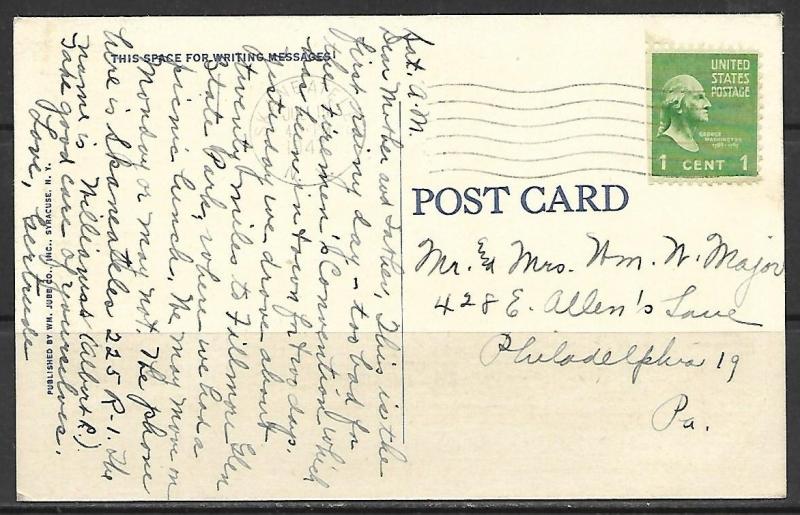 THIS SPACE FOR WRITING MESSAGES
Sat. A.M.
Dear Mother and Father, This is the
first rainy day - too bad for
the Firemen's Convention which
has been in town for two days.
Yesterday we drove about
twenty miles to Fillmore Glen
State Park, where we had a
picnic lunch. We may move on
Monday or may not. The phone
here is Skaneateles 225 R-1. The
name is Williams (Albert R.)
Take good care of yourselves.
Love, Gertrude
PUBLISHED BY WM. JUBB CO., INC., SYRACUSE, N. Y.
UNITED
STATES
POSTAGE
GEORGE
WASHINGTON
1789-1797
1 CENT 1
POST CARD
Mr. and Mrs. Wm. W. Major
428 E. Allen's Lane
Philadelphia 19
Pa.